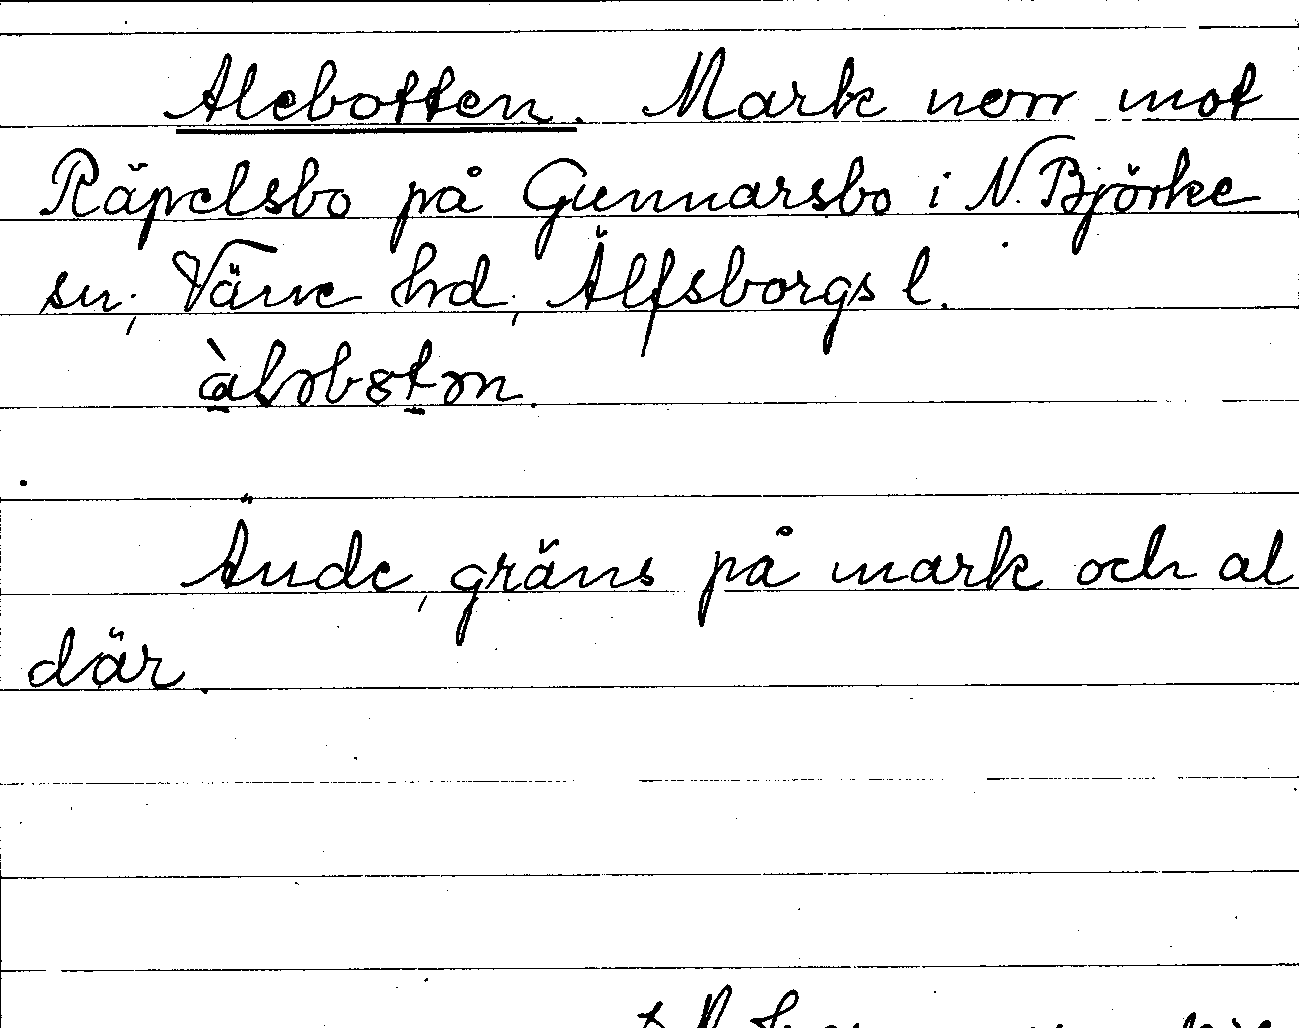 Alebotten. Mark norr mot
Räpelsbo på Gunnarsbo i N. Björke
sn, Väne hd, Älfsborgs l.
àləbɷtən.
Ände, gräns på mark och al
där.